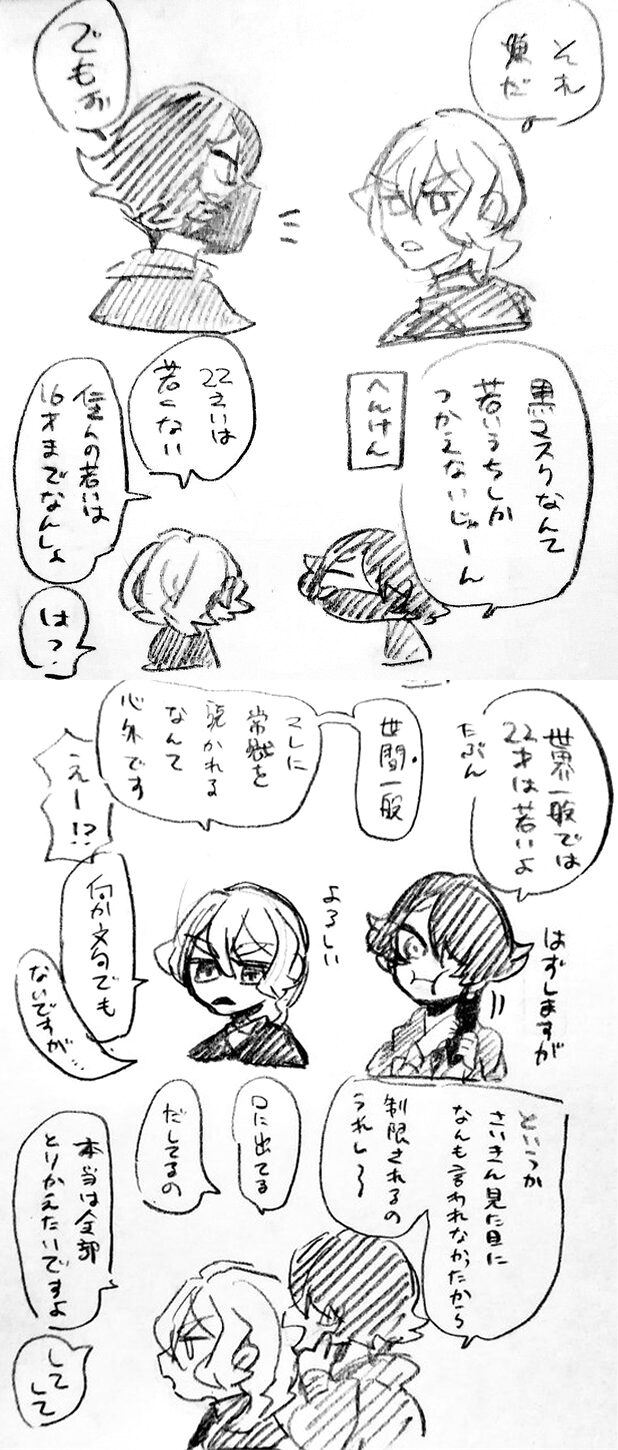 それ
嫌だ
でもお
黒マスクなんて
若いうちしか
つかえないじゃーん
へんけん
22さいは
若くない
僕らの若いは
16才までなんしょ
は?
世界一般では
22才は若いよ
たぶん
世間一般
こしに
常識を
説かれる
なんて
心外です
えー!?
はずしますが
よろしい
何か文句でも
ないですが…
というか
さいきん見た目に
なんも言われなかったから
制限されるの
うれし〜
口に出てる
だしてるの
本当は全部
とりかえたいですよ
して
して